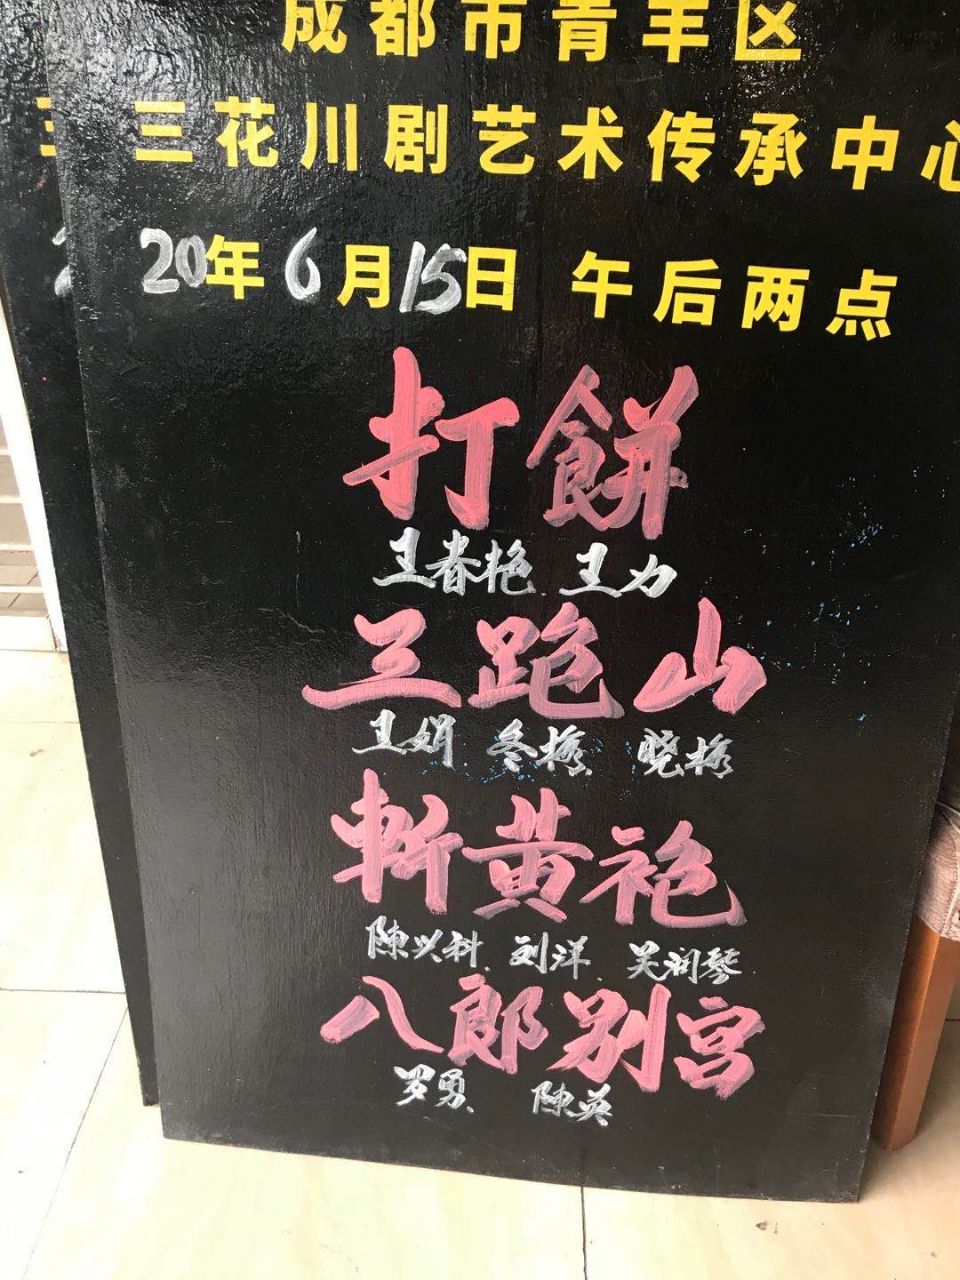 成都市青羊区
三花川剧艺术传承中心
20年6月15日 午后两点
打餅
王春艳、王力
三跑山
王娟、冬梅、晓梅
斬黄袍
陳兴科、刘洋、吴润琴
八郎别宫
罗勇、陳英